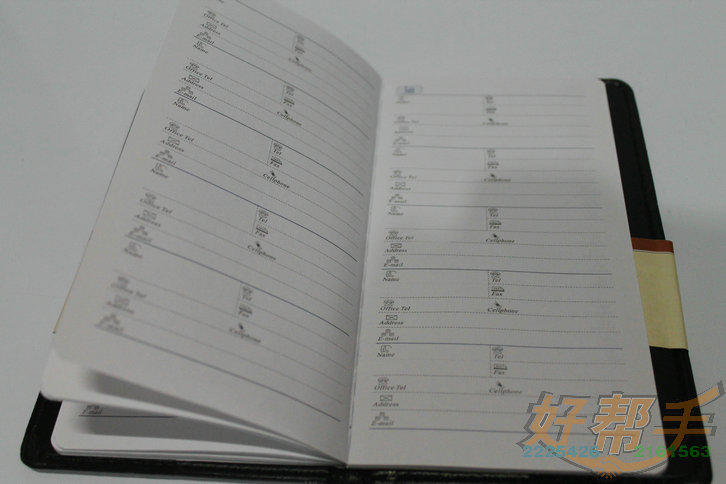 Name
Office Tel
Address Cellphone
E-mail
Name Tel
Fax
Office Tel
Address Cellphone
E-mail
Name Tel
Fax
Office Tel
Address Cellphone
E-mail
Name Tel
Fax
Office Tel
Address Cellphone
E-mail
Name Tel
Fax
Office Tel
Address Cellphone
E-mail
E-mail
Name Tel
Fax
Office Tel Cellphone
Address
E-mail
Name Tel
Fax
Office Tel Cellphone
Address
E-mail
Name Tel
Fax
Office Tel Cellphone
Address
E-mail
Name Tel
Fax
Office Tel Cellphone
Address
E-mail
Name Tel
Fax
Office Tel Cellphone
Address
E-mail
好帮手